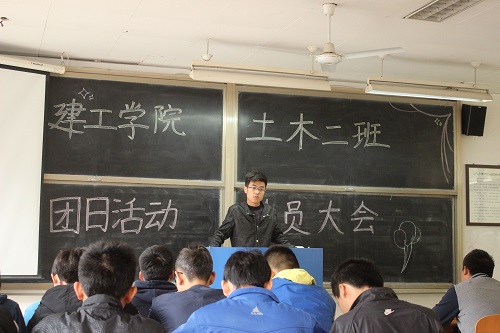 建工学院
土木二班
团日活动
员大会